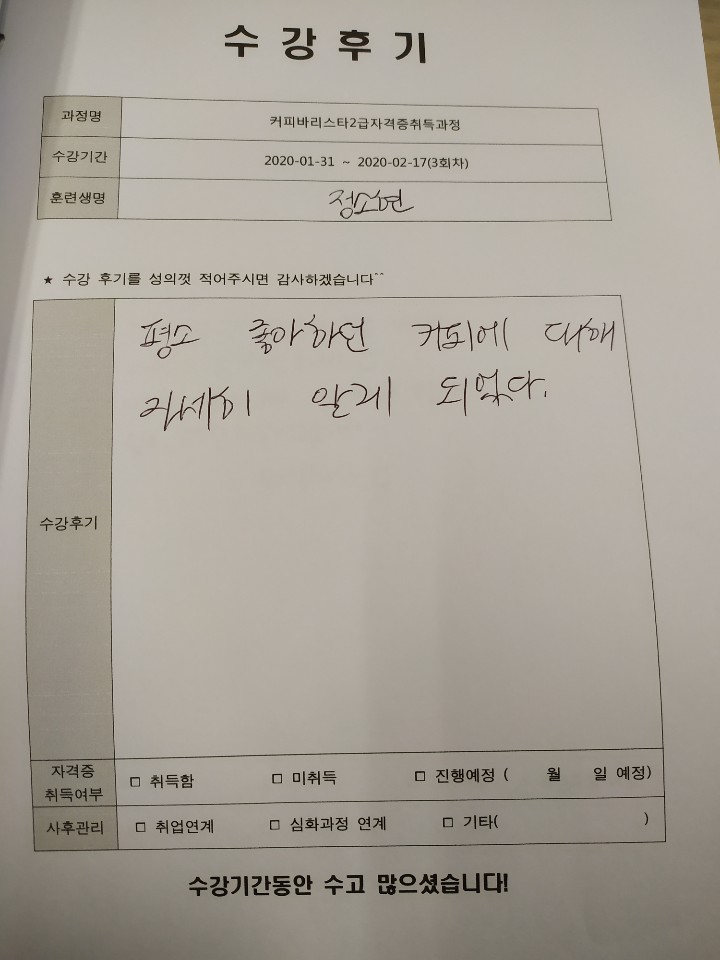 수강후기
과정명 커피바리스타2급자격증취득과정
수강기간 2020-01-31 ~ 2020-02-17(3회차)
훈련생명 정소연
★ 수강 후기를 성의껏 적어주시면 감사하겠습니다^^
평소 좋아하던 커피에 대해
자세히 알게 되었다.
수강후기
자격증
취득여부 □ 취득함 □ 미취득 □ 진행예정 ( 월 일 예정)
사후관리 □ 취업연계 □ 심화과정 연계 □ 기타( )
수강기간동안 수고 많으셨습니다!